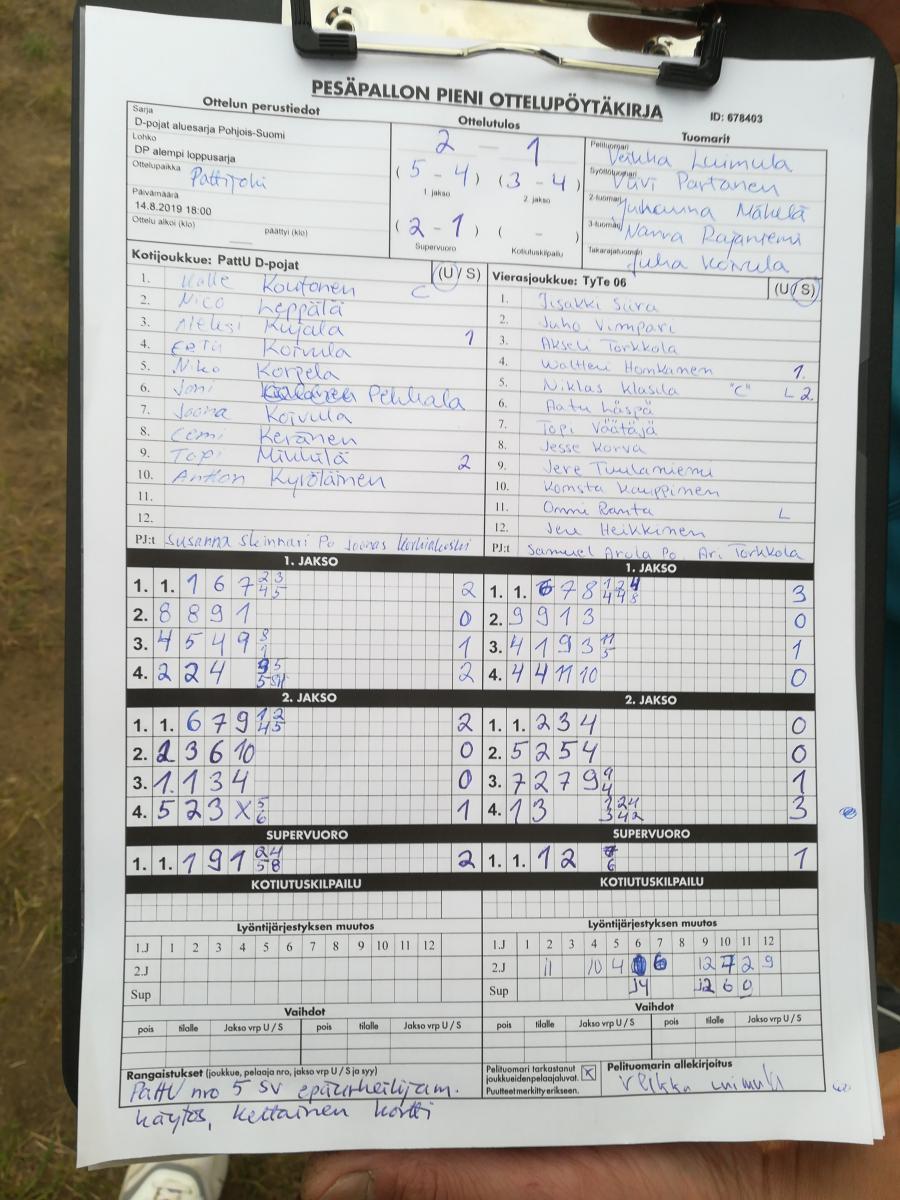 PESÄPALLON PIENI OTTELUPÖYTÄKIRJA
ID: 678403
Ottelun perustiedot
Sarja
D-pojat aluesarja Pohjois-Suomi
Lohko
DP alempi loppusarja
Ottelupaikka
Pattijoki
Päivämäärä
14.8.2019 18:00
Ottelu alkoi (klo) päättyi (klo)
Ottelutulos
2 – 1
(5 - 4) (3 - 4)
1. jakso 2. jakso
(2 - 1) ( - )
Supervuoro Kotiutuskilpailu
Tuomarit
Pelituomari Veikka Luimula
Syöttötuomari Partanen
2-tuomari Juhanna Mäkelä
3-tuomari Nanna Rajaniemi
Takarajatuomari Juha Koivula
Kotijoukkue: PattU D-pojat (U / S)
1. Kalle Koutonen C
2. Nico Leppälä
3. Aleksi Kujala
4. Eetu Koivula 1
5. Niko Korpela
6. Joni Pehkala
7. Joona Koivula
8. Eemi Keränen
9. Topi Mikkilä 2
10. Anttoni Kyröläinen
11.
12.
PJ:t Susanna Skinnari Po Joonas
Vierasjoukkue: TyTe 06 (U / S)
1. Iisakki Siira
2. Juho Vimpari
3. Akseli Torkkola
4. Waltteri Honkanen 1.
5. Niklas Klasila "C" L 2.
6. Aatu Häspä
7. Topi Väätäjä
8. Jesse Korva
9. Jere Tuulaniemi
10. Komsta Kauppinen
11. Onni Ranta L
12. Jere Heikkinen
PJ:t Samuel Arola Po. Ari Torkkola
1. JAKSO
1. 1. 1 6 7 2 3 2
4 5
2. 8 8 9 1 0
3. 4 5 4 9 3 1
1
4. 2 2 4 5 2
5
1. JAKSO
1. 1. 6 7 8 1 2 4 3
4 4 8
2. 9 9 1 3 0
3. 4 1 9 3 11 1
5
4. 4 4 11 10 0
2. JAKSO
1. 1. 6 7 9 1 2 2
4 5
2. 2 3 6 10 0
3. 1. 1 3 4 0
4. 5 2 3 X 5 1
6
2. JAKSO
1. 1. 2 3 4 0
2. 5 2 5 4 0
3. 7 2 7 9 9 1
4
4. 1 3 1 2 4 3
3 4 2
SUPERVUORO
1. 1. 1 9 1 2 4 2
5 8
SUPERVUORO
1. 1. 1 2 7 1
6
KOTIUTUSKILPAILU
KOTIUTUSKILPAILU
Lyöntijärjestyksen muutos
1.J 1 2 3 4 5 6 7 8 9 10 11 12
2.J
Sup
Lyöntijärjestyksen muutos
1.J 1 2 3 4 5 6 7 8 9 10 11 12
2.J 11 10 4 6 12 7 2 9
Sup 12 6
Vaihdot
pois tilalle Jakso vrp U / S pois tilalle Jakso vrp U / S
Vaihdot
pois tilalle Jakso vrp U / S pois tilalle Jakso vrp U / S
Rangaistukset (joukkue, pelaaja nro, jakso vrp U / S ja syy)
PattU nro 5 SV epäurheilijam.
käytös, keltainen kortti
Pelituomari tarkastanut
joukkueidenpelaajaluvat. X
Puutteet merkitty erikseen.
Pelituomarin allekirjoitus
Veikka Luimula